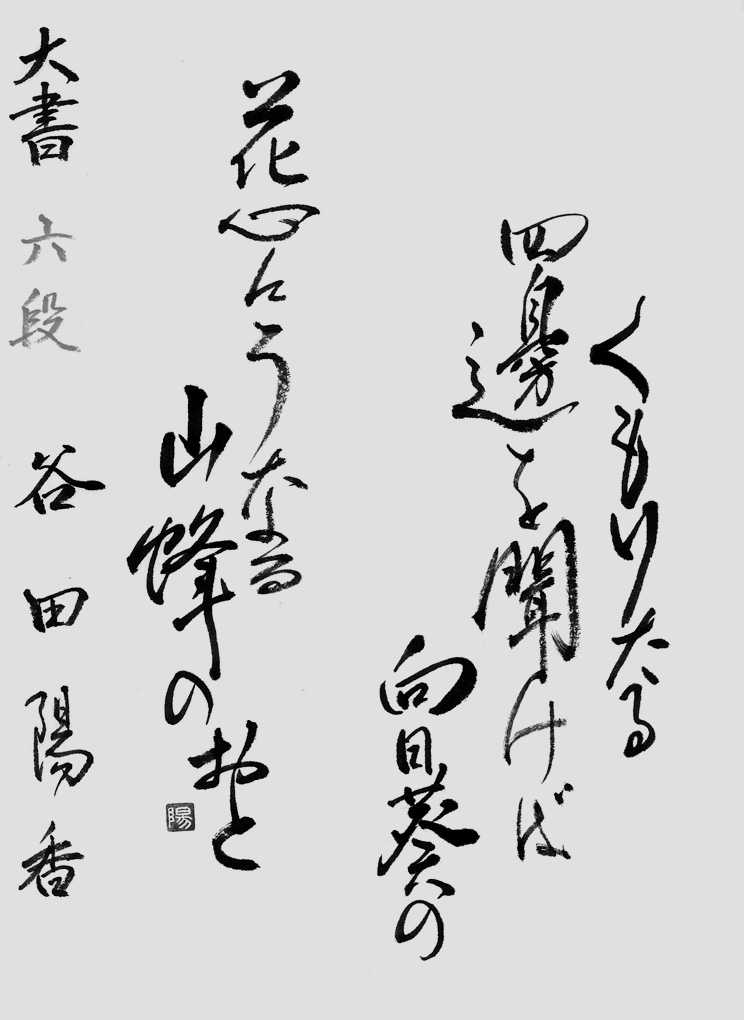 くもりたる
四邊を聞けば
向日葵の
花心にうなる
山蜂のおと
大書 六段 谷田陽香
陽